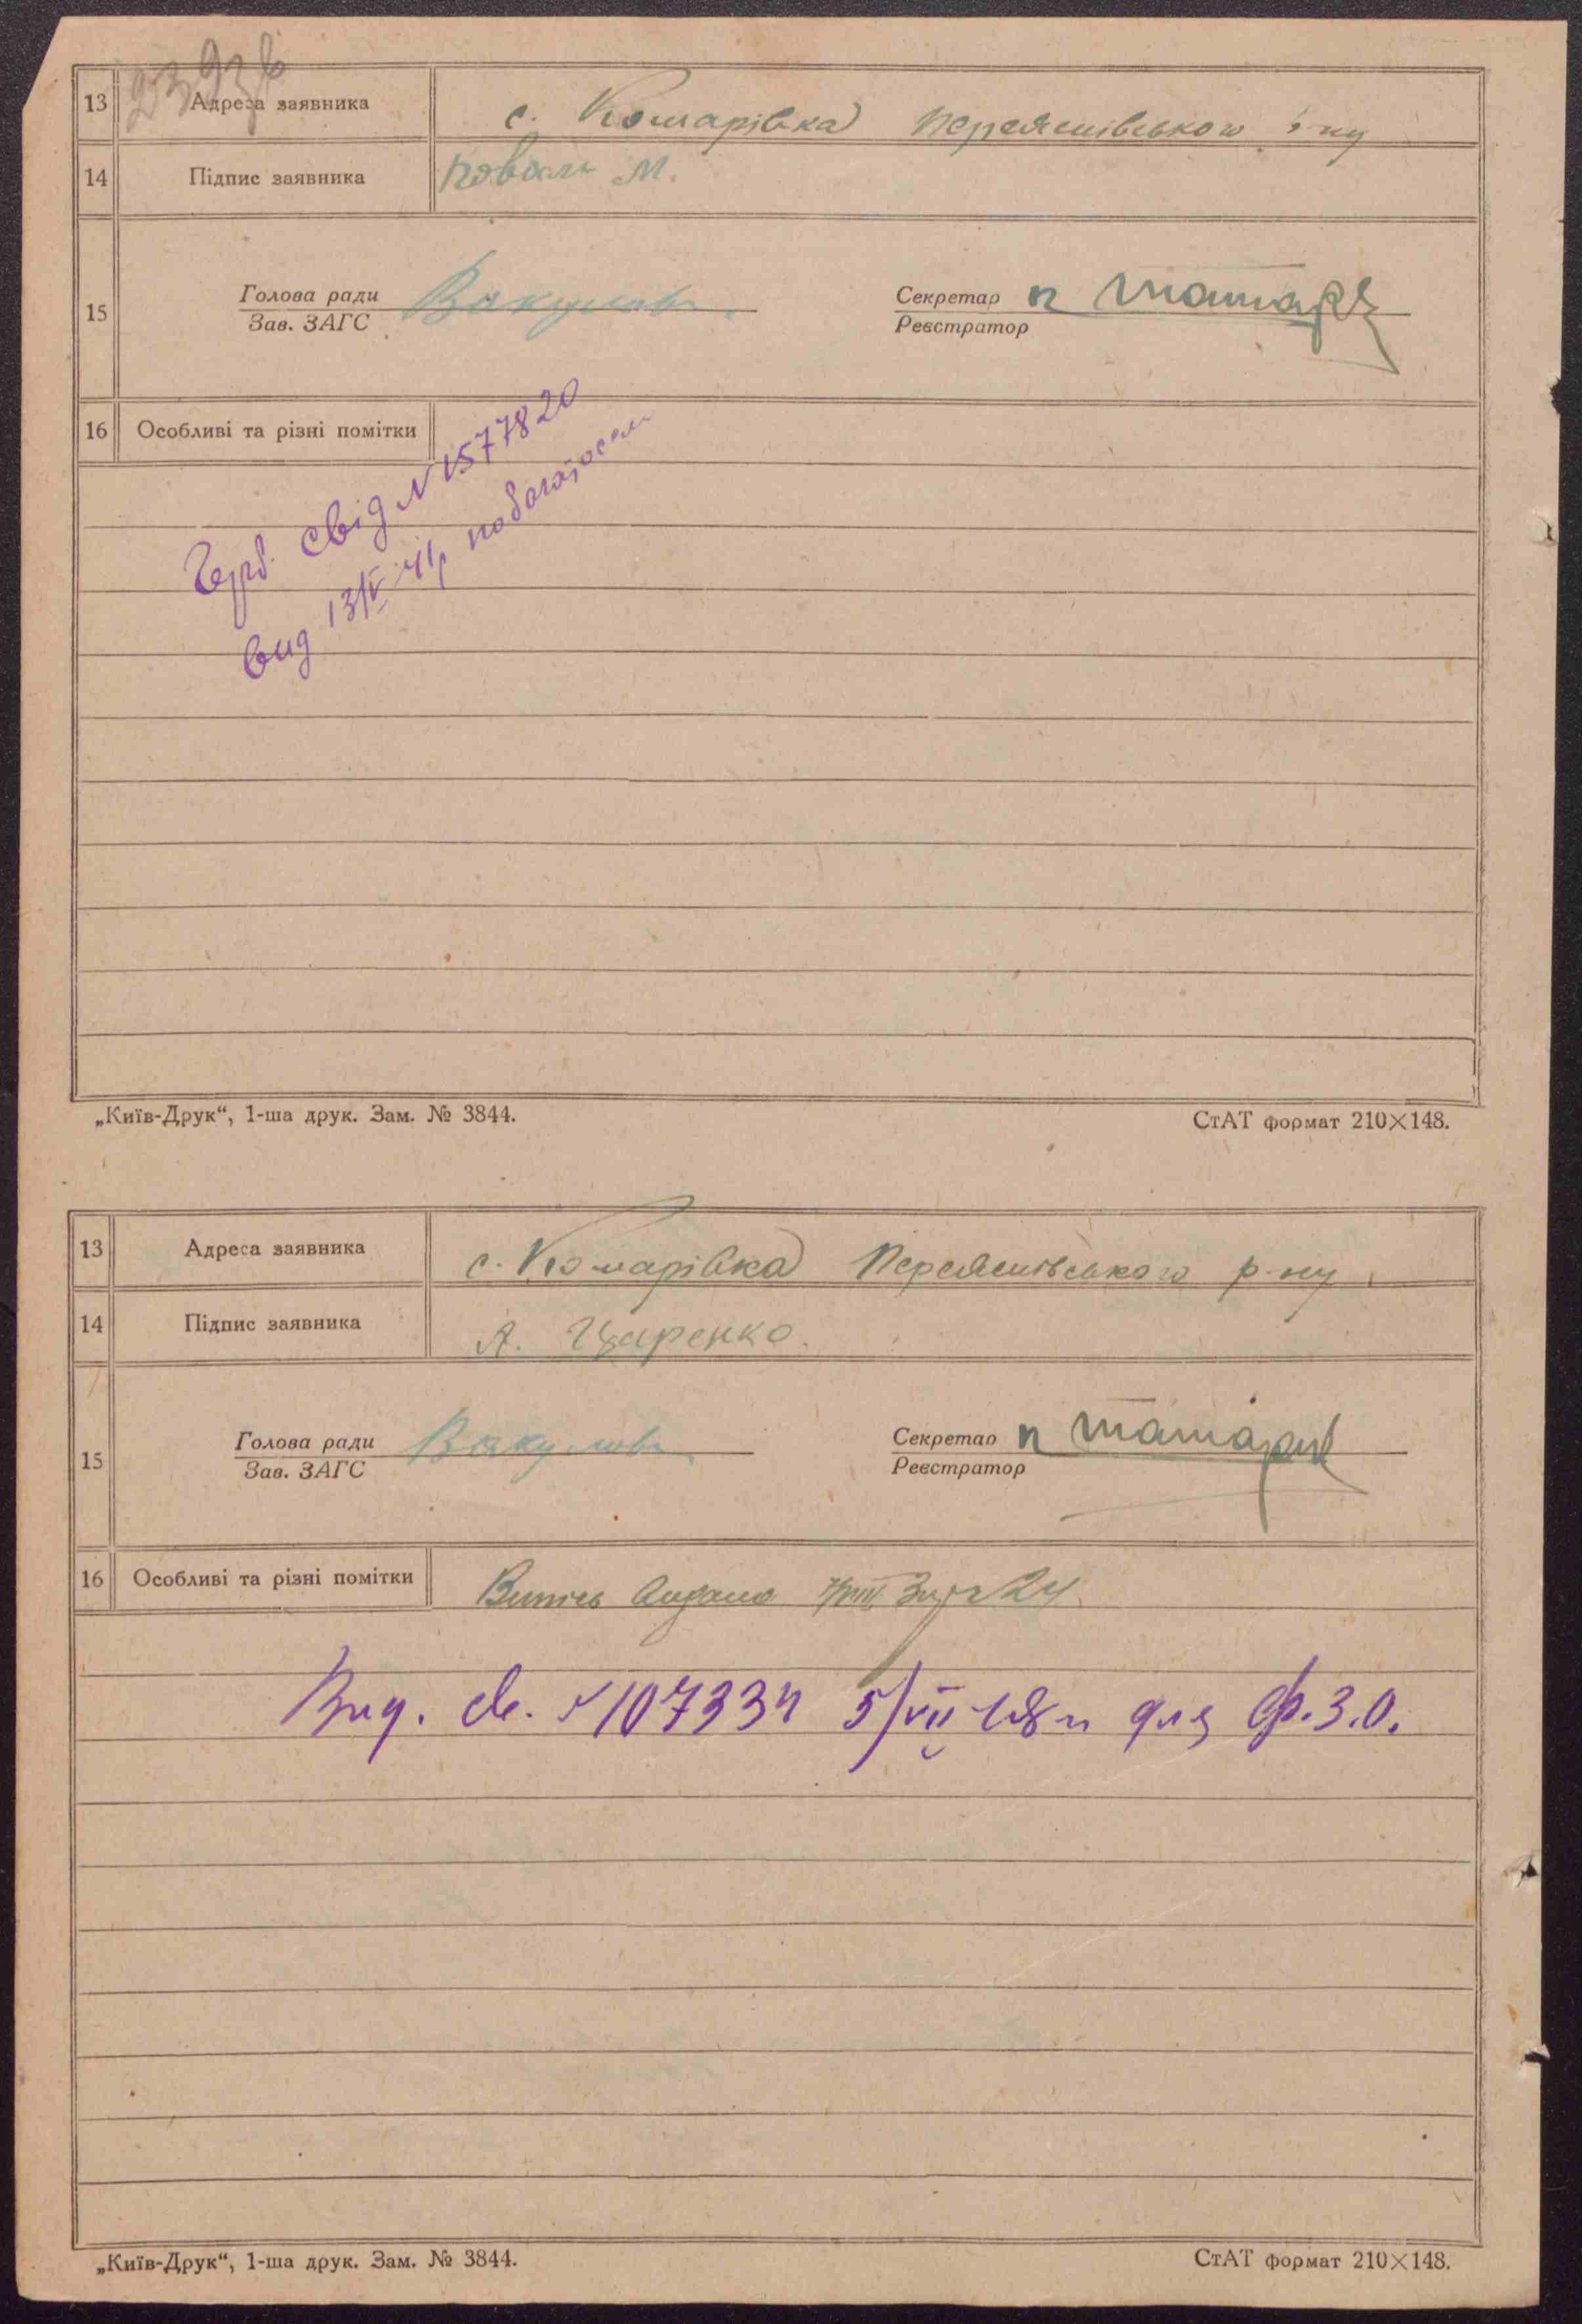 13 Адреса заявника с. Комарівка Переяславського р-ну
14 Підпис заявника Коваль М.
15 Голова ради
Зав. ЗАГС
Секретар
Реєстратор
16 Особливі та різні помітки
Герб. свід N 1577820
вид 13/V 41р
„Київ-Друк“, 1-ша друк. Зам. № 3844. СтАТ формат 210×148.
13 Адреса заявника с. Комарівка Переяславського р-ну
14 Підпис заявника А. Царенко
15 Голова ради
Зав. ЗАГС
Секретар
Реєстратор
16 Особливі та різні помітки
Вид. св. № 107334 5/VII 48 для Ф.З.О.
„Київ-Друк“, 1-ша друк. Зам. № 3844. СтАТ формат 210×148.